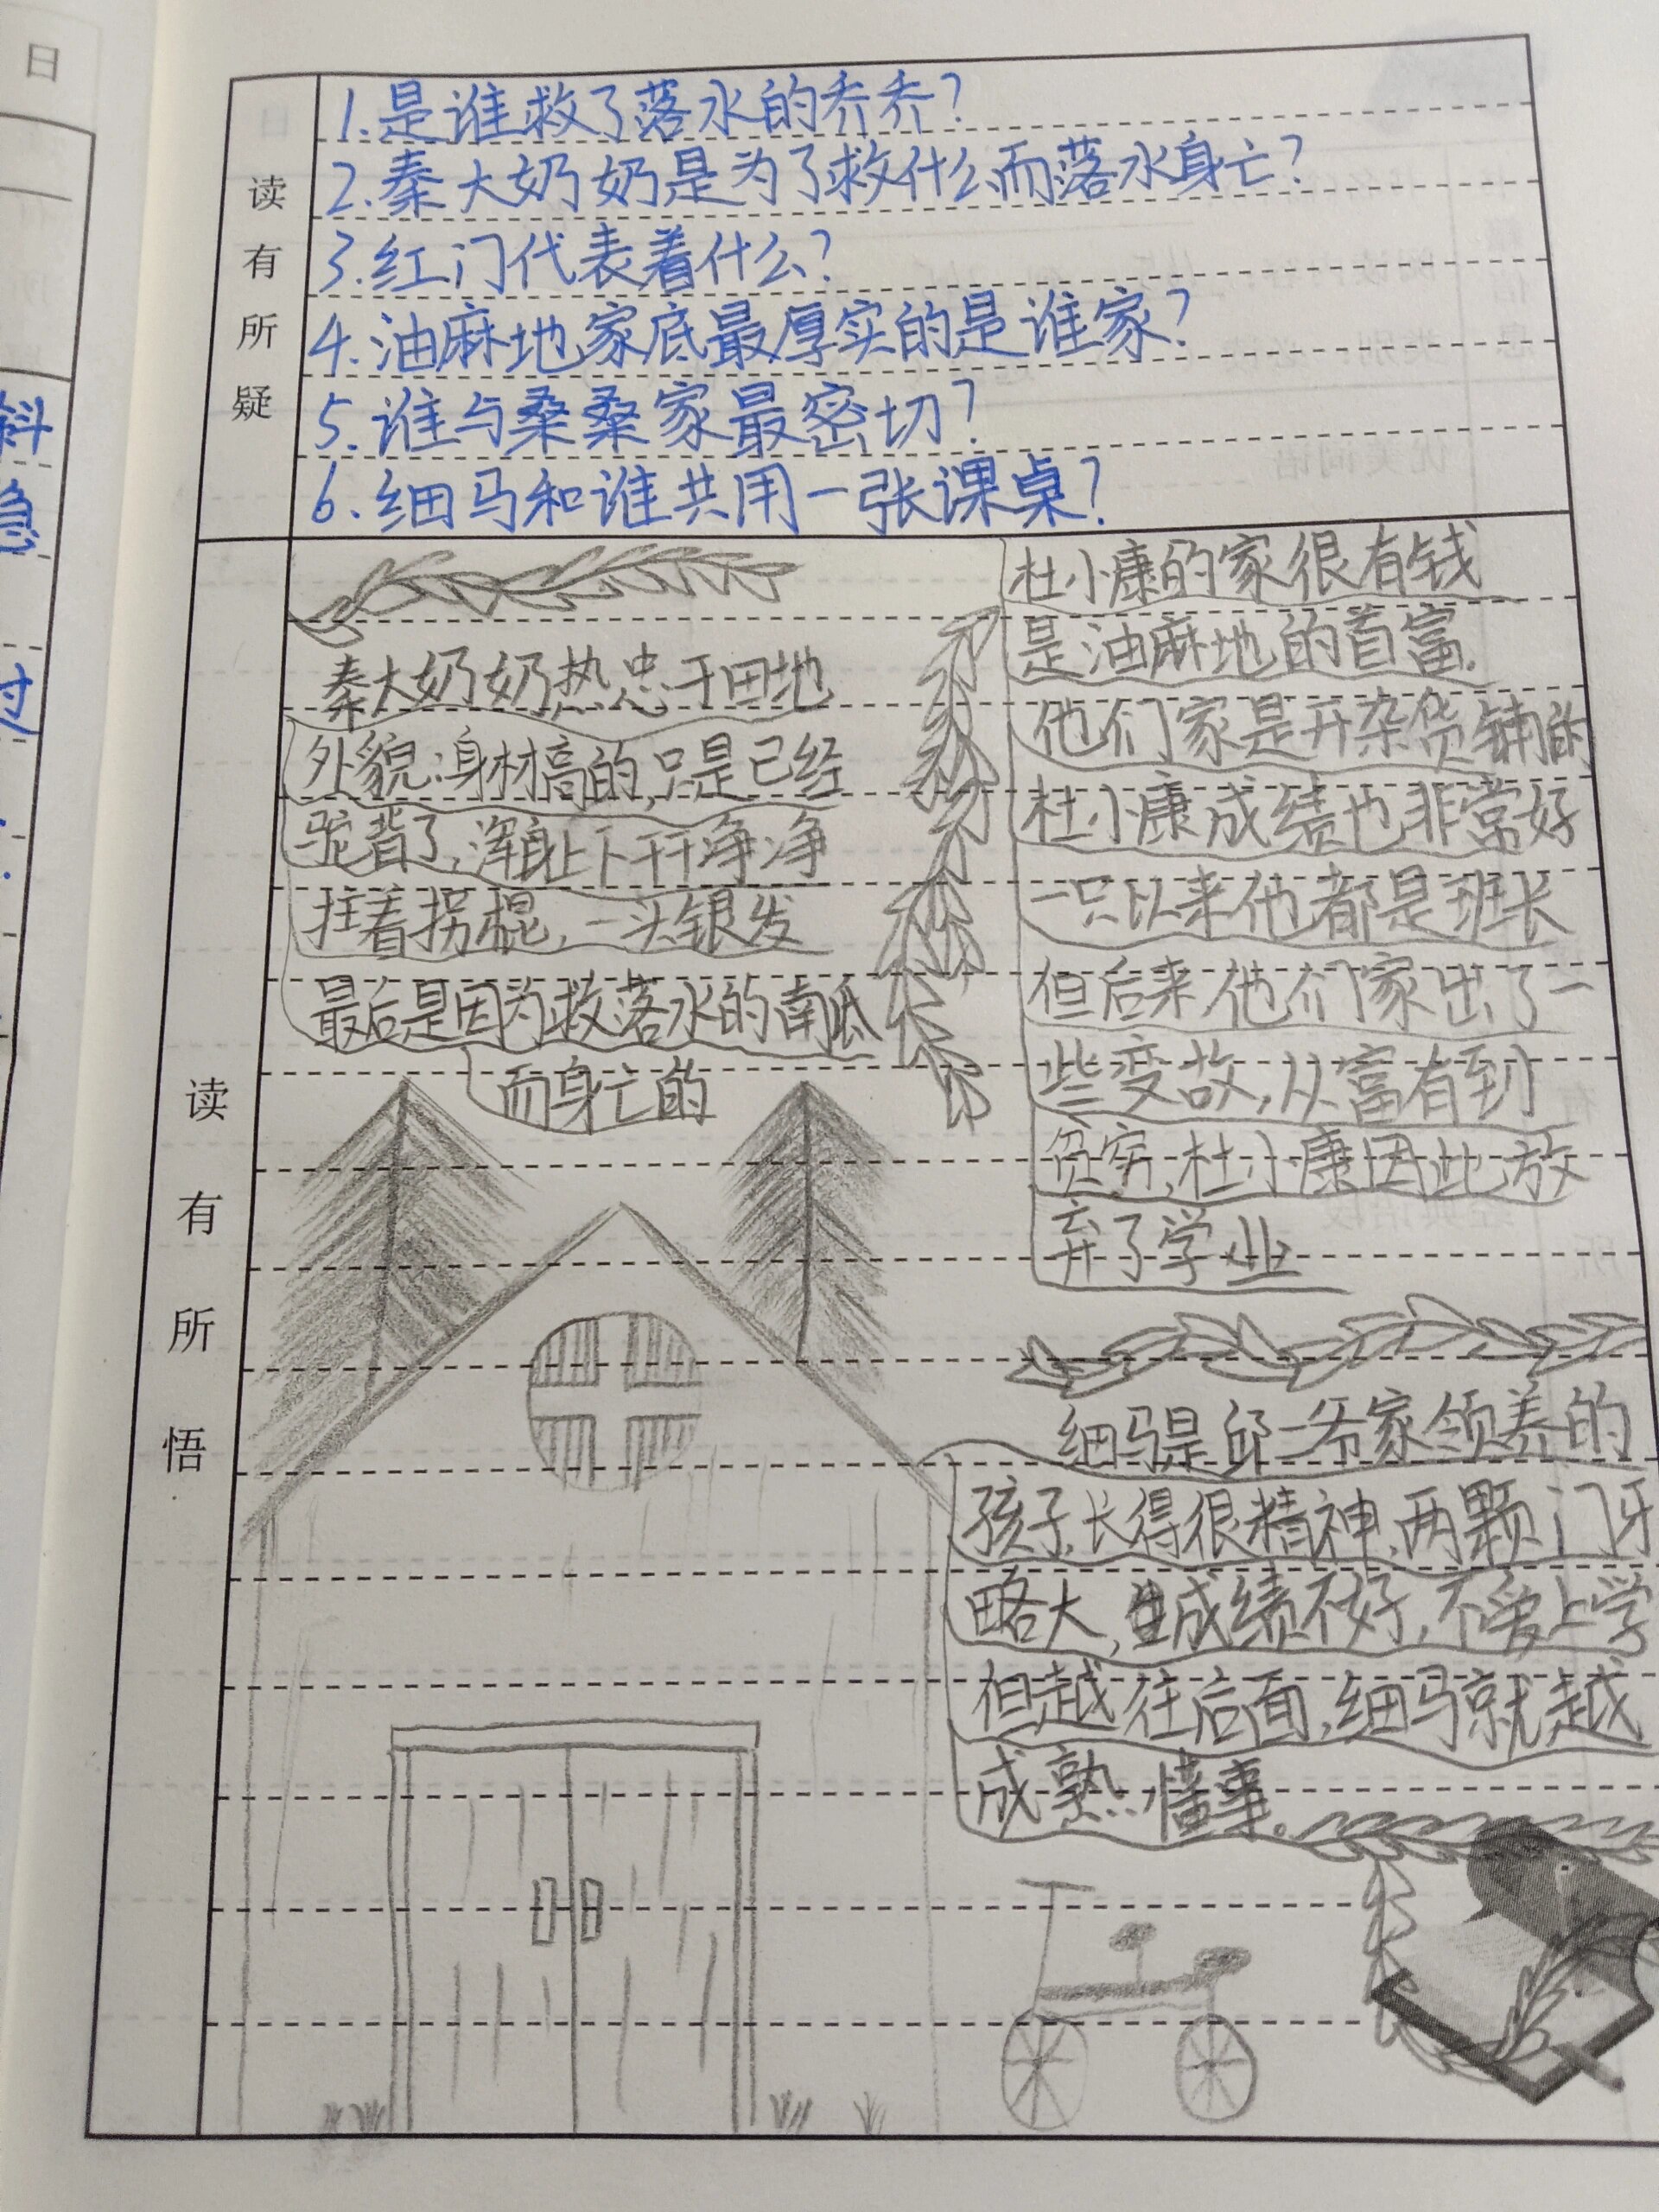 日
斜
急
过
读有所疑
1.是谁救了落水的乔乔?
2.秦大奶奶是为了救什么而落水身亡?
3.红门代表着什么?
4.油麻地家底最厚实的是谁家?
5.谁与桑桑家最密切?
6.细马和谁共用一张课桌?
读有所悟
秦大奶奶热忠于田地
外貌:身材高的,只是已经
驼背了,浑身上下干干净净
拄着拐棍,一头银发
最后是因为救落水的南瓜
而身亡的
杜小康的家很有钱
是油麻地的首富.
他们家是开杂货铺的
杜小康成绩也非常好
一只以来他都是班长
但后来他们家出了一
些变故,从富有到
贫穷,杜小康因此放
弃了学业
细马是邱二爷家领养的
孩子,长得很精神,两颗门牙
略大,成绩不好,不爱上学
但越往后面,细马就越
成熟,懂事。